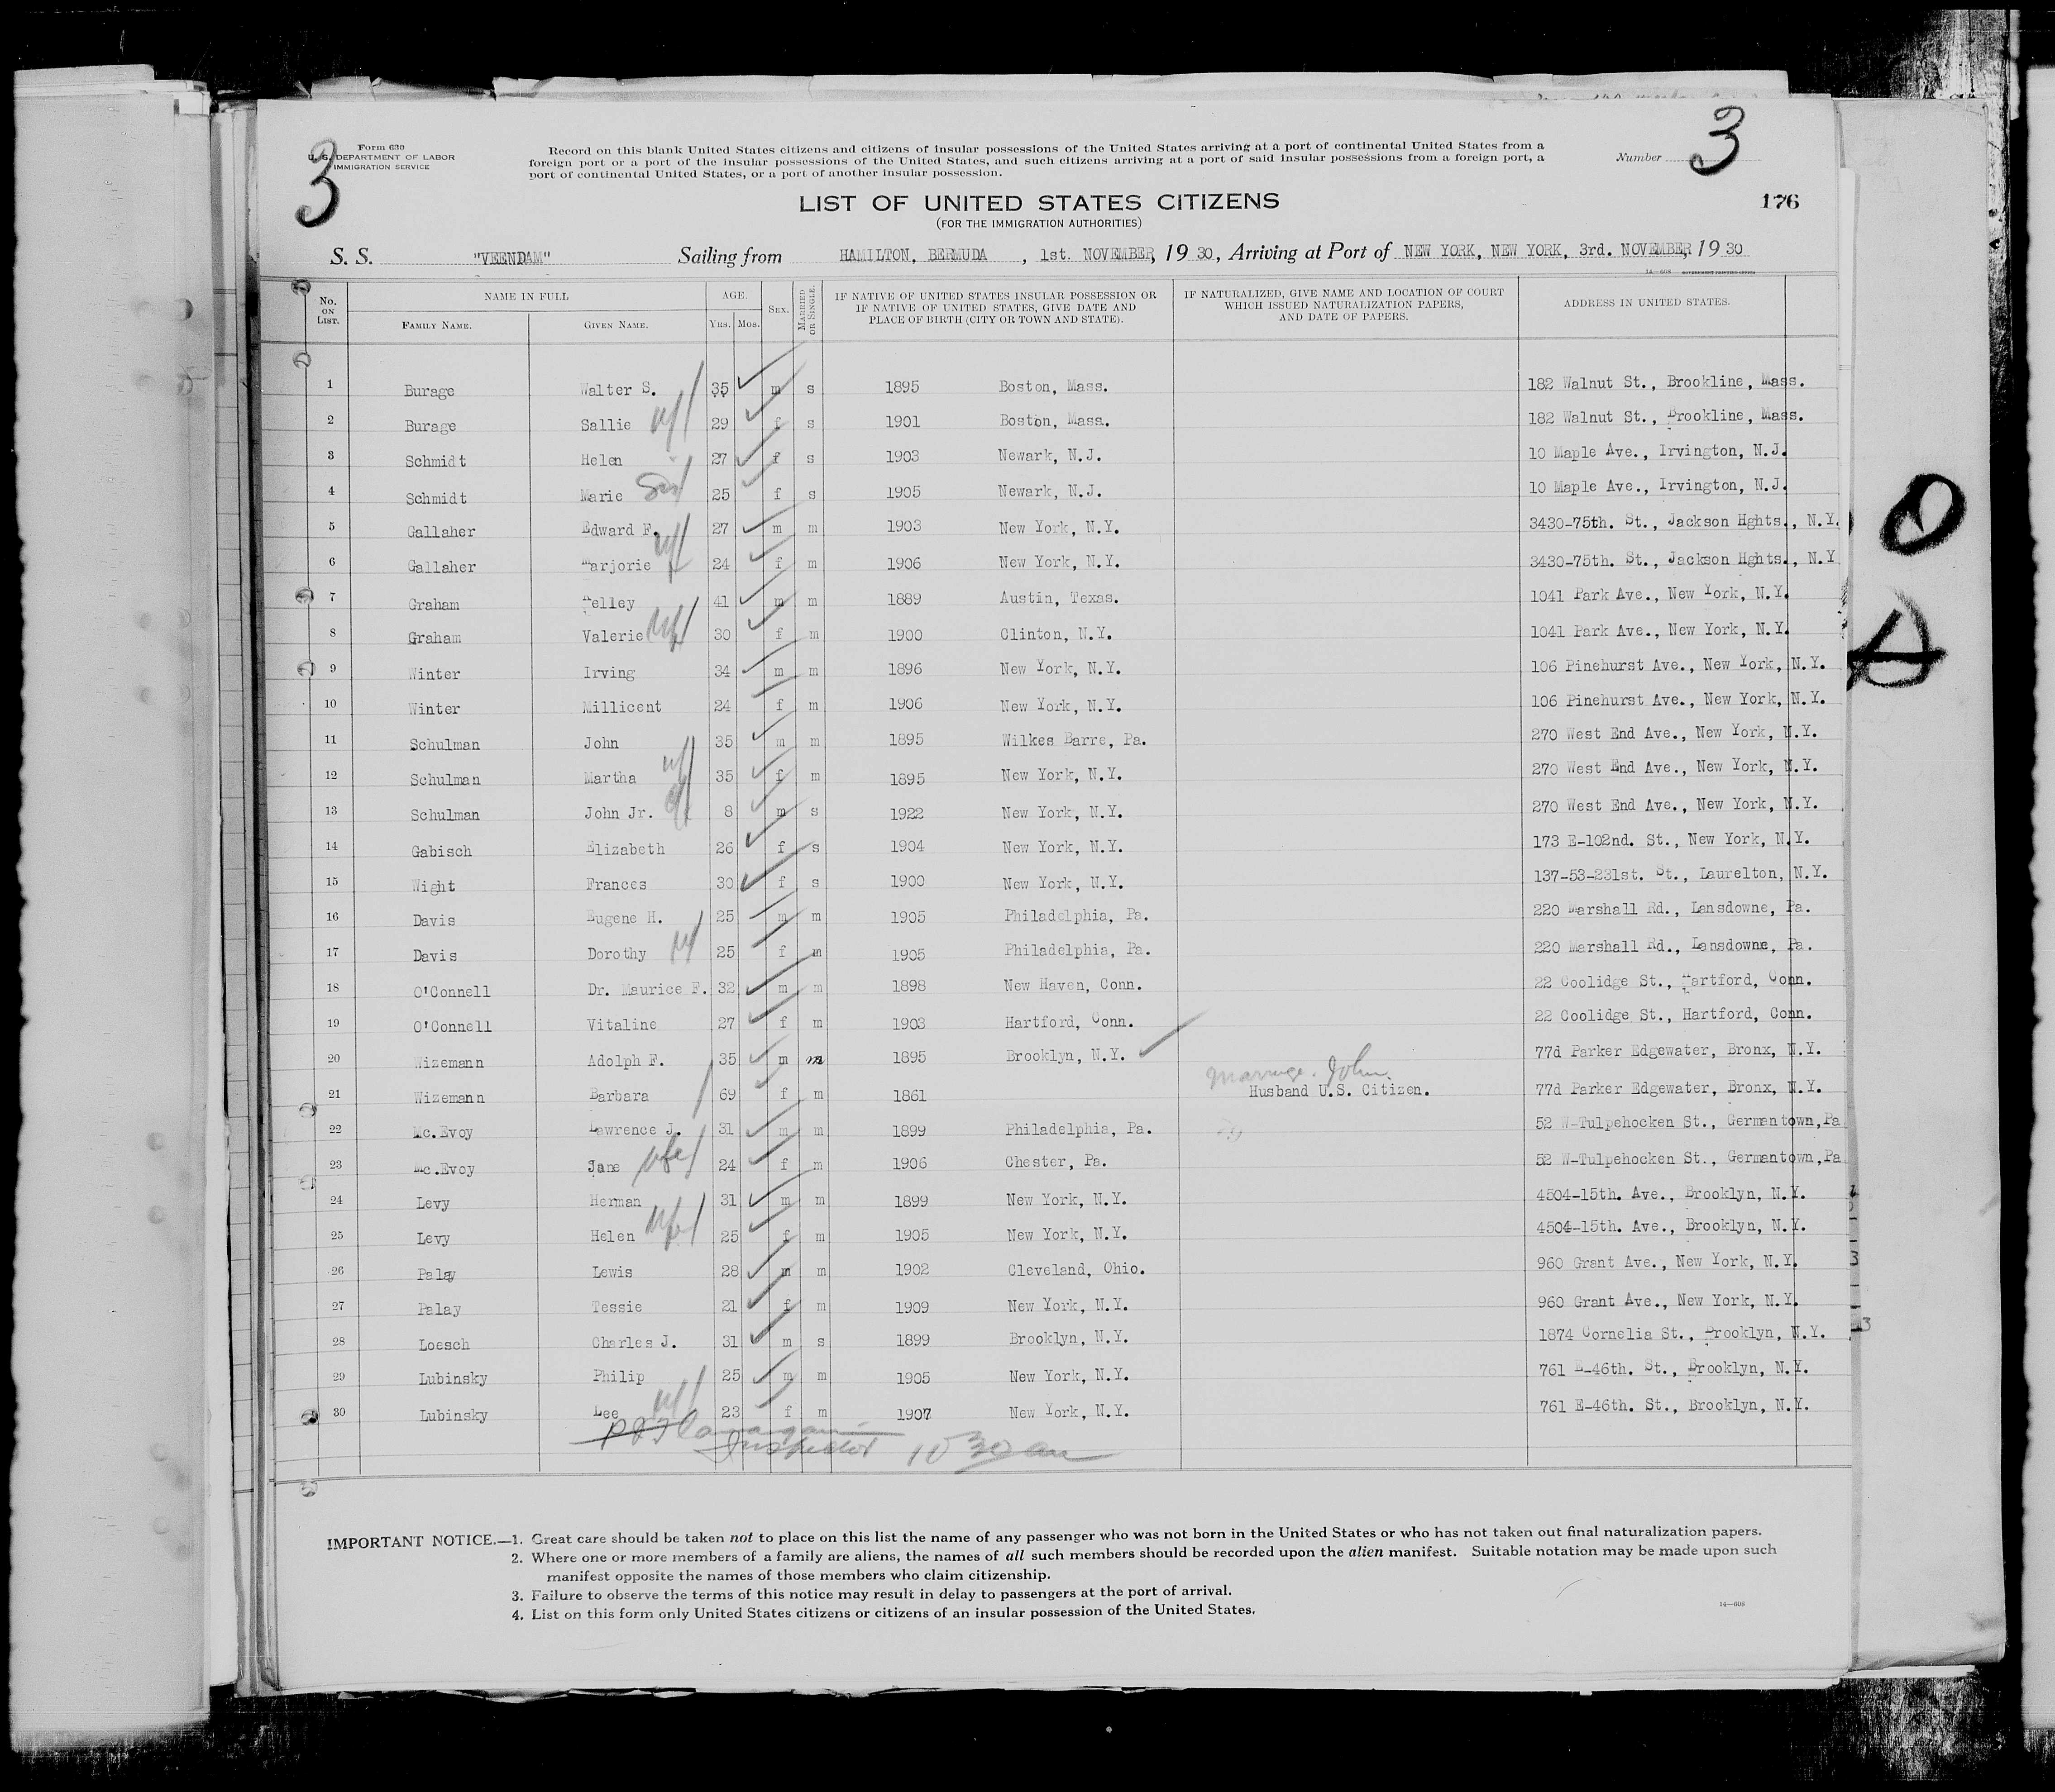 3
Form 630
U. S. DEPARTMENT OF LABOR
IMMIGRATION SERVICE
Record on this blank United States citizens and citizens of insular possessions of the United States arriving at a port of continental United States from a
foreign port or a port of the insular possessions of the United States, and such citizens arriving at a port of said insular possessions from a foreign port, a
port of continental United States, or a port of another insular possession.
Number 3
LIST OF UNITED STATES CITIZENS
(FOR THE IMMIGRATION AUTHORITIES)
176
S. S. "VEENDAM" Sailing from HAMILTON, BERMUDA, 1st. NOVEMBER, 1930, Arriving at Port of NEW YORK, NEW YORK, 3rd. NOVEMBER, 1930
14—608 GOVERNMENT PRINTING OFFICE
No. ON LIST. NAME IN FULL FAMILY NAME. GIVEN NAME. AGE. YRS. MOS. SEX. MARRIED OR SINGLE. IF NATIVE OF UNITED STATES INSULAR POSSESSION OR IF NATIVE OF UNITED STATES, GIVE DATE AND PLACE OF BIRTH (CITY OR TOWN AND STATE). IF NATURALIZED, GIVE NAME AND LOCATION OF COURT WHICH ISSUED NATURALIZATION PAPERS, AND DATE OF PAPERS. ADDRESS IN UNITED STATES.
1 Burage Walter S. 35 m s 1895 Boston, Mass. 182 Walnut St., Brookline, Mass.
2 Burage Sallie wf 29 f s 1901 Boston, Mass. 182 Walnut St., Brookline, Mass.
3 Schmidt Helen 27 f s 1903 Newark, N.J. 10 Maple Ave., Irvington, N.J.
4 Schmidt Marie Sis 25 f s 1905 Newark, N.J. 10 Maple Ave., Irvington, N.J.
5 Gallaher Edward F. 27 m m 1903 New York, N.Y. 3430-75th. St., Jackson Hghts., N.Y.
6 Gallaher Marjorie wf 24 f m 1906 New York, N.Y. 3430-75th. St., Jackson Hghts., N.Y
7 Graham 41 m m 1889 Austin, Texas. 1041 Park Ave., New York, N.Y.
8 Graham Valerie wf 30 f m 1900 Clinton, N.Y. 1041 Park Ave., New York, N.Y.
9 Winter Irving 34 m m 1896 New York, N.Y. 106 Pinehurst Ave., New York, N.Y.
10 Winter Millicent 24 f m 1906 New York, N.Y. 106 Pinehurst Ave., New York, N.Y.
11 Schulman John 35 m m 1895 Wilkes Barre, Pa. 270 West End Ave., New York, N.Y.
12 Schulman Martha wf 35 f m 1895 New York, N.Y. 270 West End Ave., New York, N.Y.
13 Schulman John Jr. 8 m s 1922 New York, N.Y. 270 West End Ave., New York, N.Y.
14 Gabisch Elizabeth 26 f s 1904 New York, N.Y. 173 E-102nd. St., New York, N.Y.
15 Wight Frances 30 f s 1900 New York, N.Y. 137-53-231st. St., Laurelton, N.Y.
16 Davis Eugene H. 25 m m 1905 Philadelphia, Pa. 220 Marshall Rd., Lansdowne, Pa.
17 Davis Dorothy wf 25 f m 1905 Philadelphia, Pa. 220 Marshall Rd., Lansdowne, Pa.
18 O'Connell Dr. Maurice F. 32 m m 1898 New Haven, Conn. 22 Coolidge St., Hartford, Conn.
19 O'Connell Vitaline 27 f m 1903 Hartford, Conn. 22 Coolidge St., Hartford, Conn.
20 Wizemann Adolph F. 35 m m 1895 Brooklyn, N.Y. 77d Parker Edgewater, Bronx, N.Y.
Marriage. John.
21 Wizemann Barbara 69 f m 1861 Husband U.S. Citizen. 77d Parker Edgewater, Bronx, N.Y.
22 Mc.Evoy Lawrence J. 31 m m 1899 Philadelphia, Pa. 52 W-Tulpehocken St., Germantown,Pa
23 Mc.Evoy Jane wfe 24 f m 1906 Chester, Pa. 52 W-Tulpehocken St., Germantown,Pa
24 Levy Herman 31 m m 1899 New York, N.Y. 4504-15th. Ave., Brooklyn, N.Y.
25 Levy Helen wfe 25 f m 1905 New York, N.Y. 4504-15th. Ave., Brooklyn, N.Y.
26 Palay Lewis 28 m m 1902 Cleveland, Ohio. 960 Grant Ave., New York, N.Y.
27 Palay Tessie 21 f m 1909 New York, N.Y. 960 Grant Ave., New York, N.Y.
28 Loesch Charles J. 31 m s 1899 Brooklyn, N.Y. 1874 Cornelia St., Brooklyn, N.Y.
29 Lubinsky Philip 25 m m 1905 New York, N.Y. 761 E-46th. St., Brooklyn, N.Y.
30 Lubinsky Lee wf 23 f m 1907 New York, N.Y. 761 E-46th. St., Brooklyn, N.Y.
Inspector 10 30 am
IMPORTANT NOTICE.—1. Great care should be taken not to place on this list the name of any passenger who was not born in the United States or who has not taken out final naturalization papers.
2. Where one or more members of a family are aliens, the names of all such members should be recorded upon the alien manifest. Suitable notation may be made upon such
manifest opposite the names of those members who claim citizenship.
3. Failure to observe the terms of this notice may result in delay to passengers at the port of arrival.
4. List on this form only United States citizens or citizens of an insular possession of the United States.
14—608